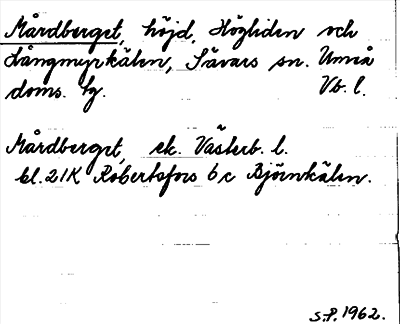 Mårdberget, höjd, Högliden och
Långmyrkälen, Sävars sn. Umeå
doms. hg. Vb. l.
Mårdberget, ek. Västerb. l.
bl. 21K Robertsfors 6c Björnkälen.
S.P. 1962.